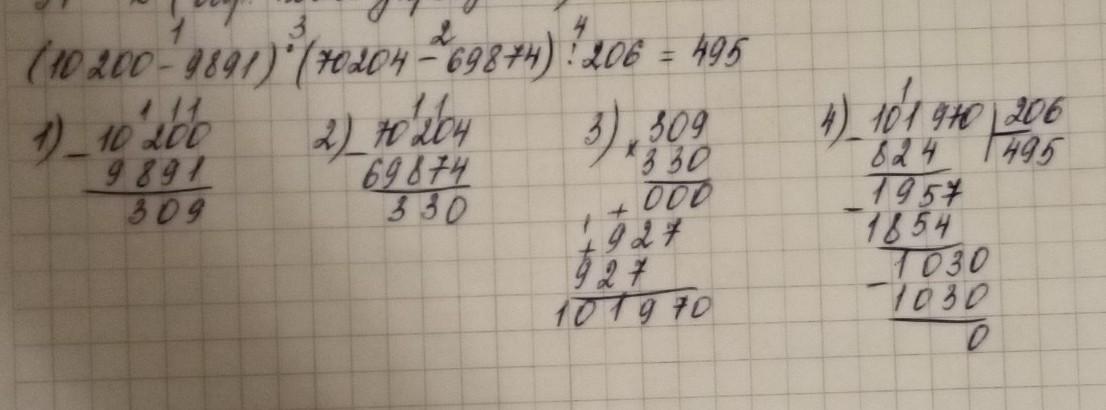 1 3 2 4
(10200-9891)·(70204-69874):206=495
1) 2) 3) 4)
1 11
10200
- 9891
309
11
70204
- 69874
330
309
× 330
000
+ 1
+ 927
927
101970
1
101970 | 206
- 824 495
1957
- 1854
1030
- 1030
0